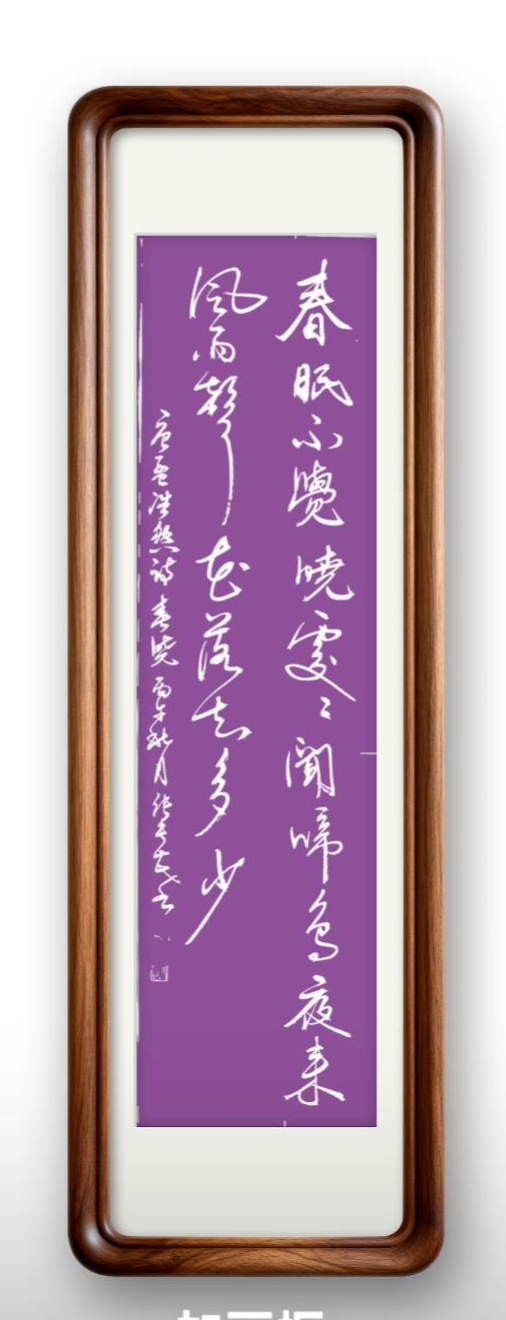 春眠不覺曉處々聞啼鳥夜来
風雨聲花落知多少
唐孟浩然詩春曉丙午秋月